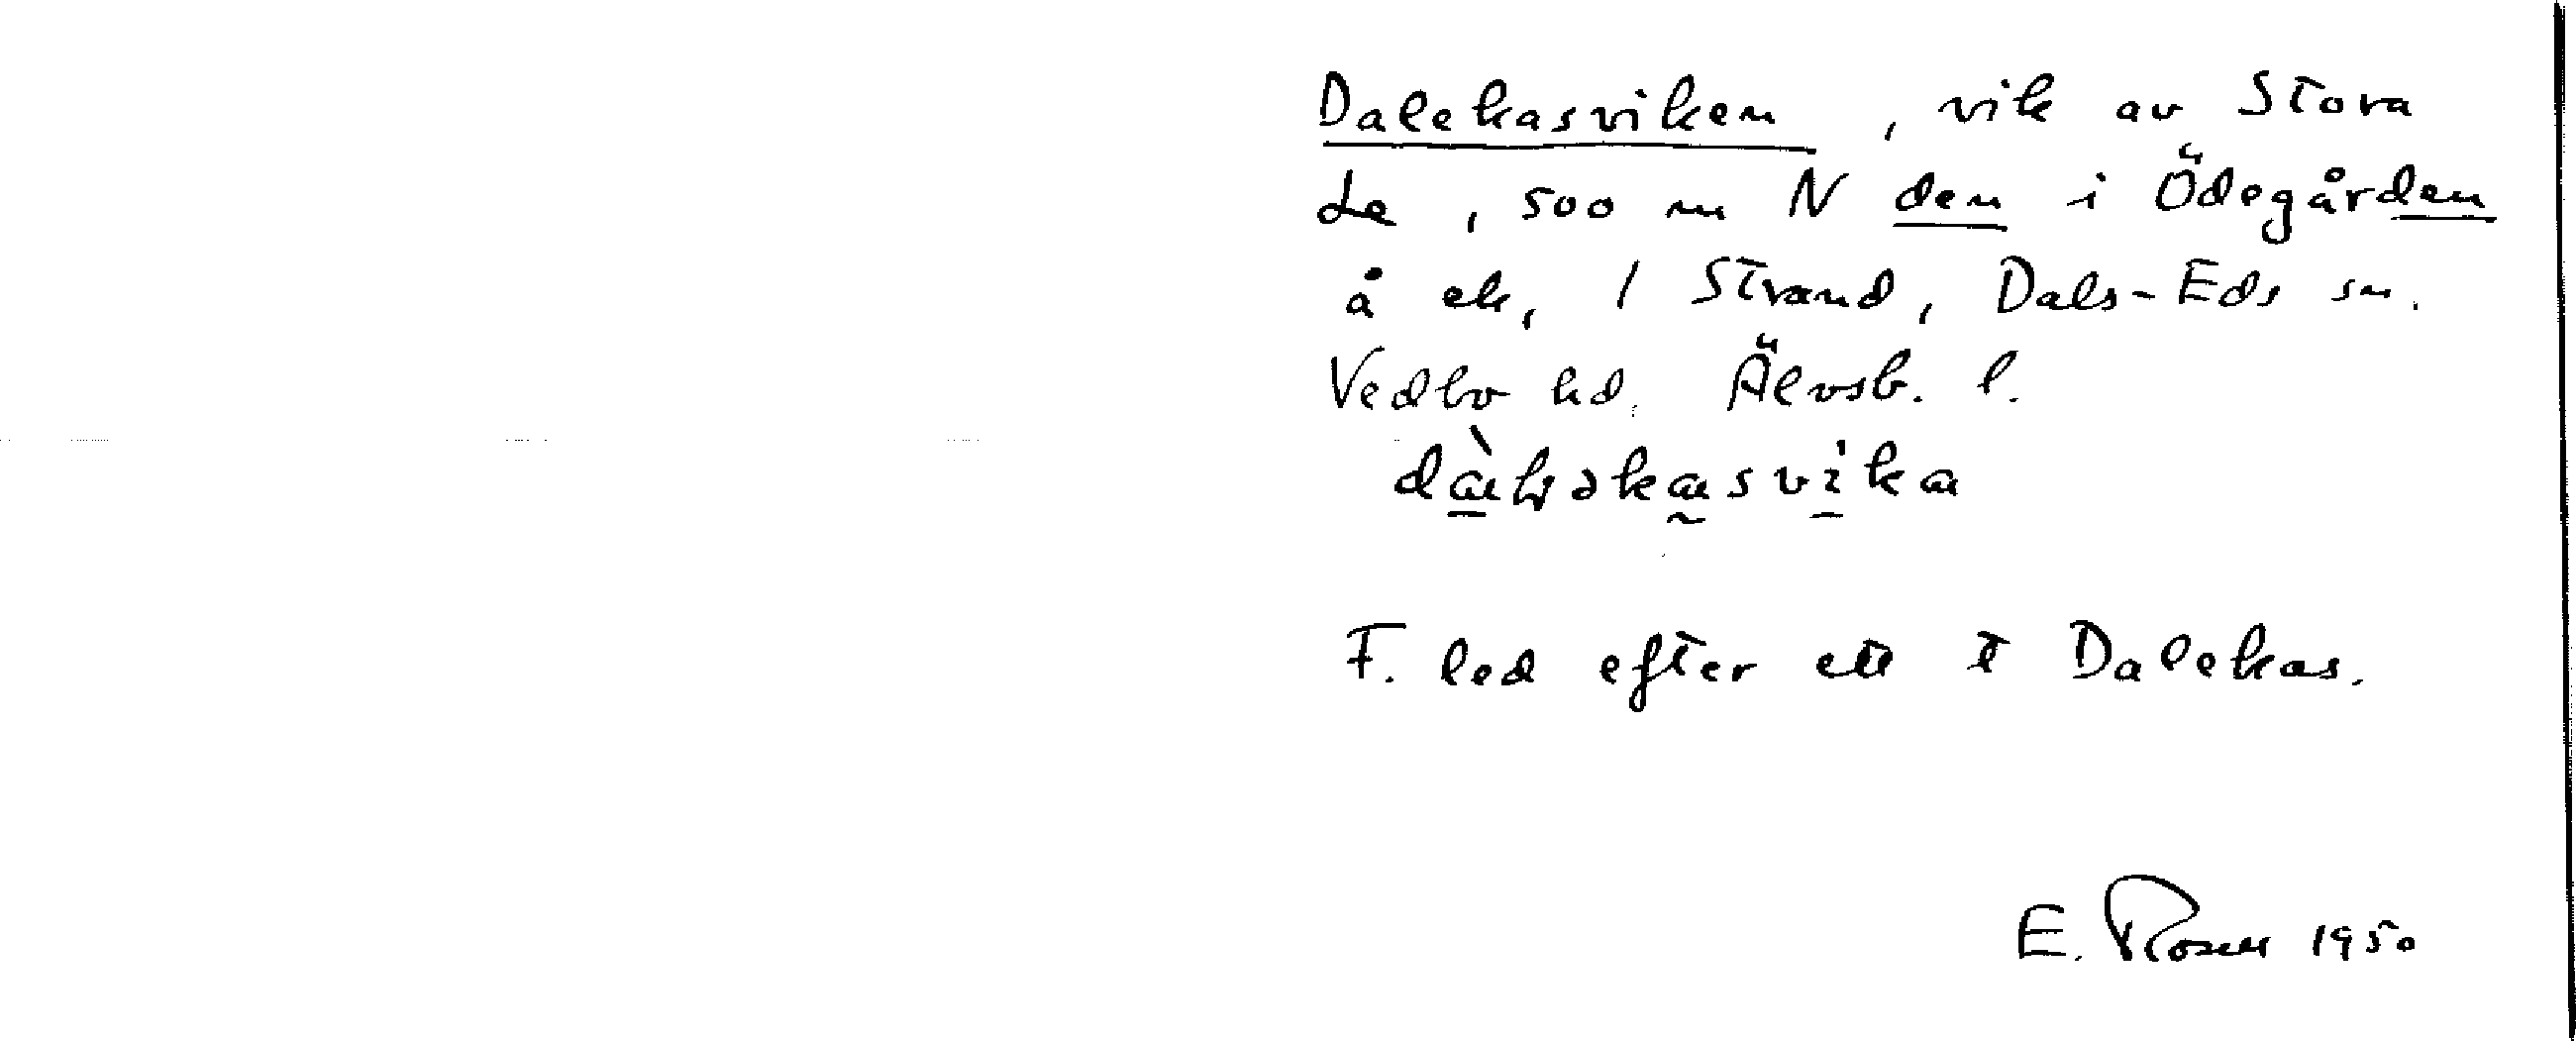 Dalekasviken, vik av Stora
Le, 500 m N den i Ödegården
å ek, 1 Strand, Dals-Eds sn.
Vedbo hd. Älvsb. l.
F. led efter ett † Dalekas.
E. Rosell 1950